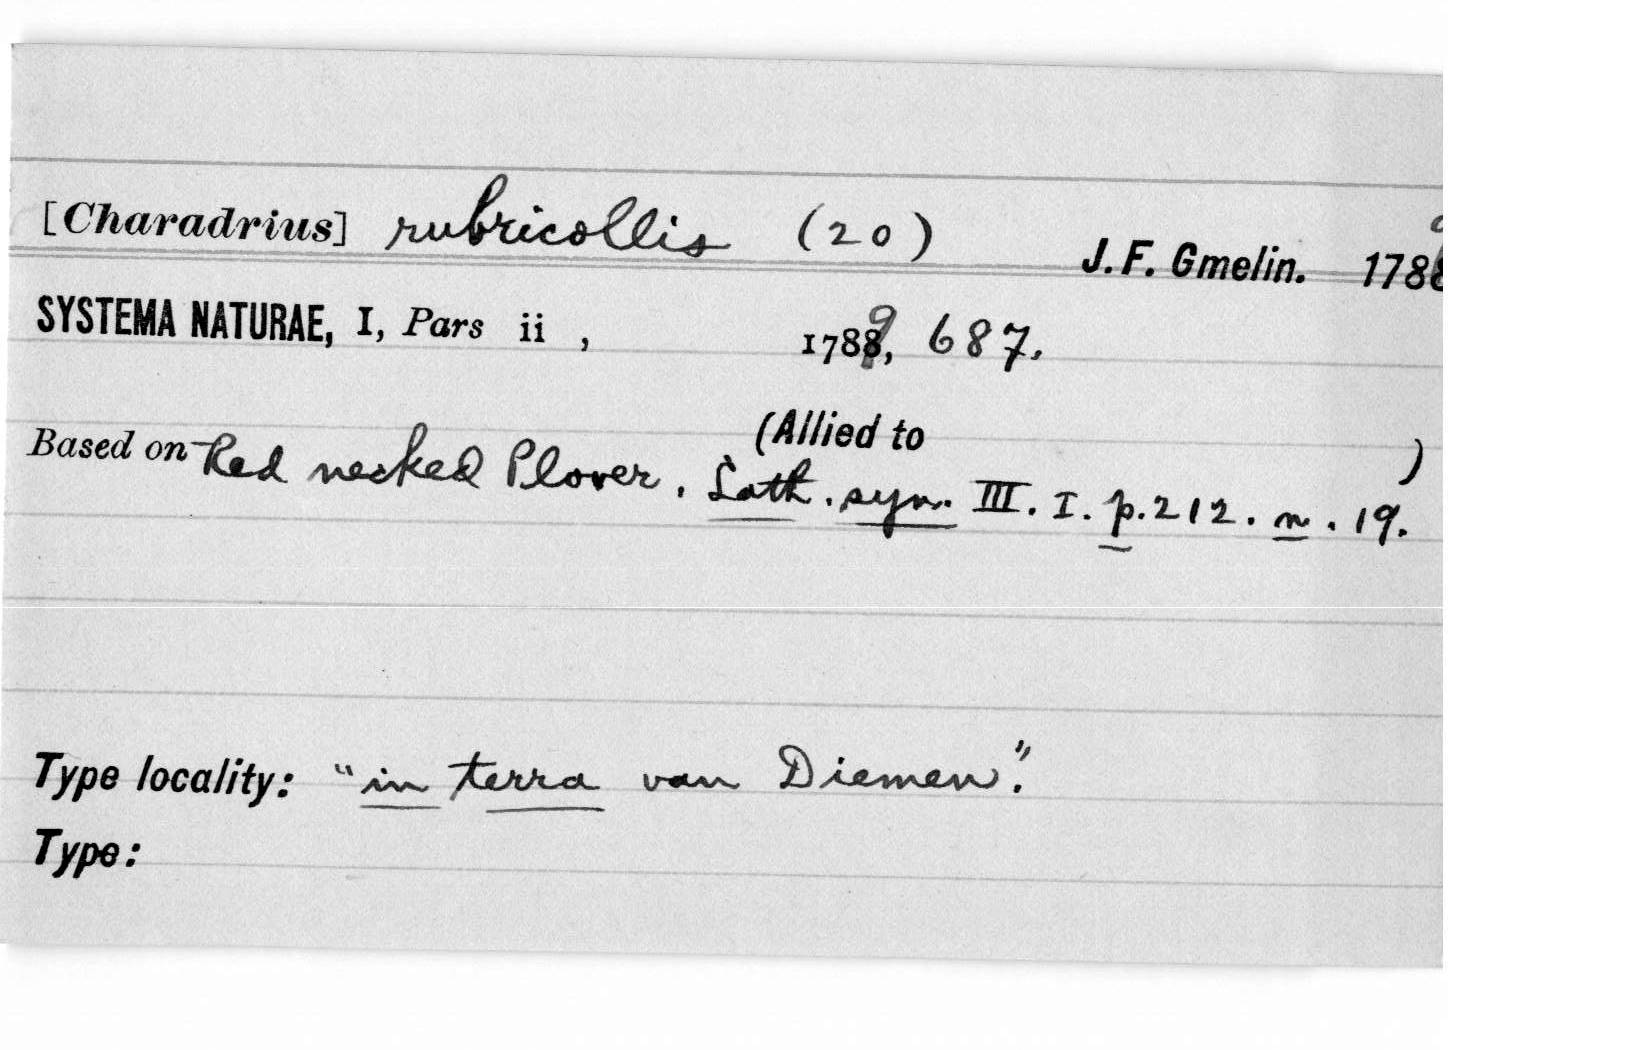 [Charadrius] rubricollis (20) J. F. Gmelin. 1789
SYSTEMA NATURAE, I, Pars ii , 1789, 687.
(Allied to )
Based on Red necked Plover. Lath. syn. III. I. p. 212. n. 19.
Type locality: "in terra van Diemen".
Type: